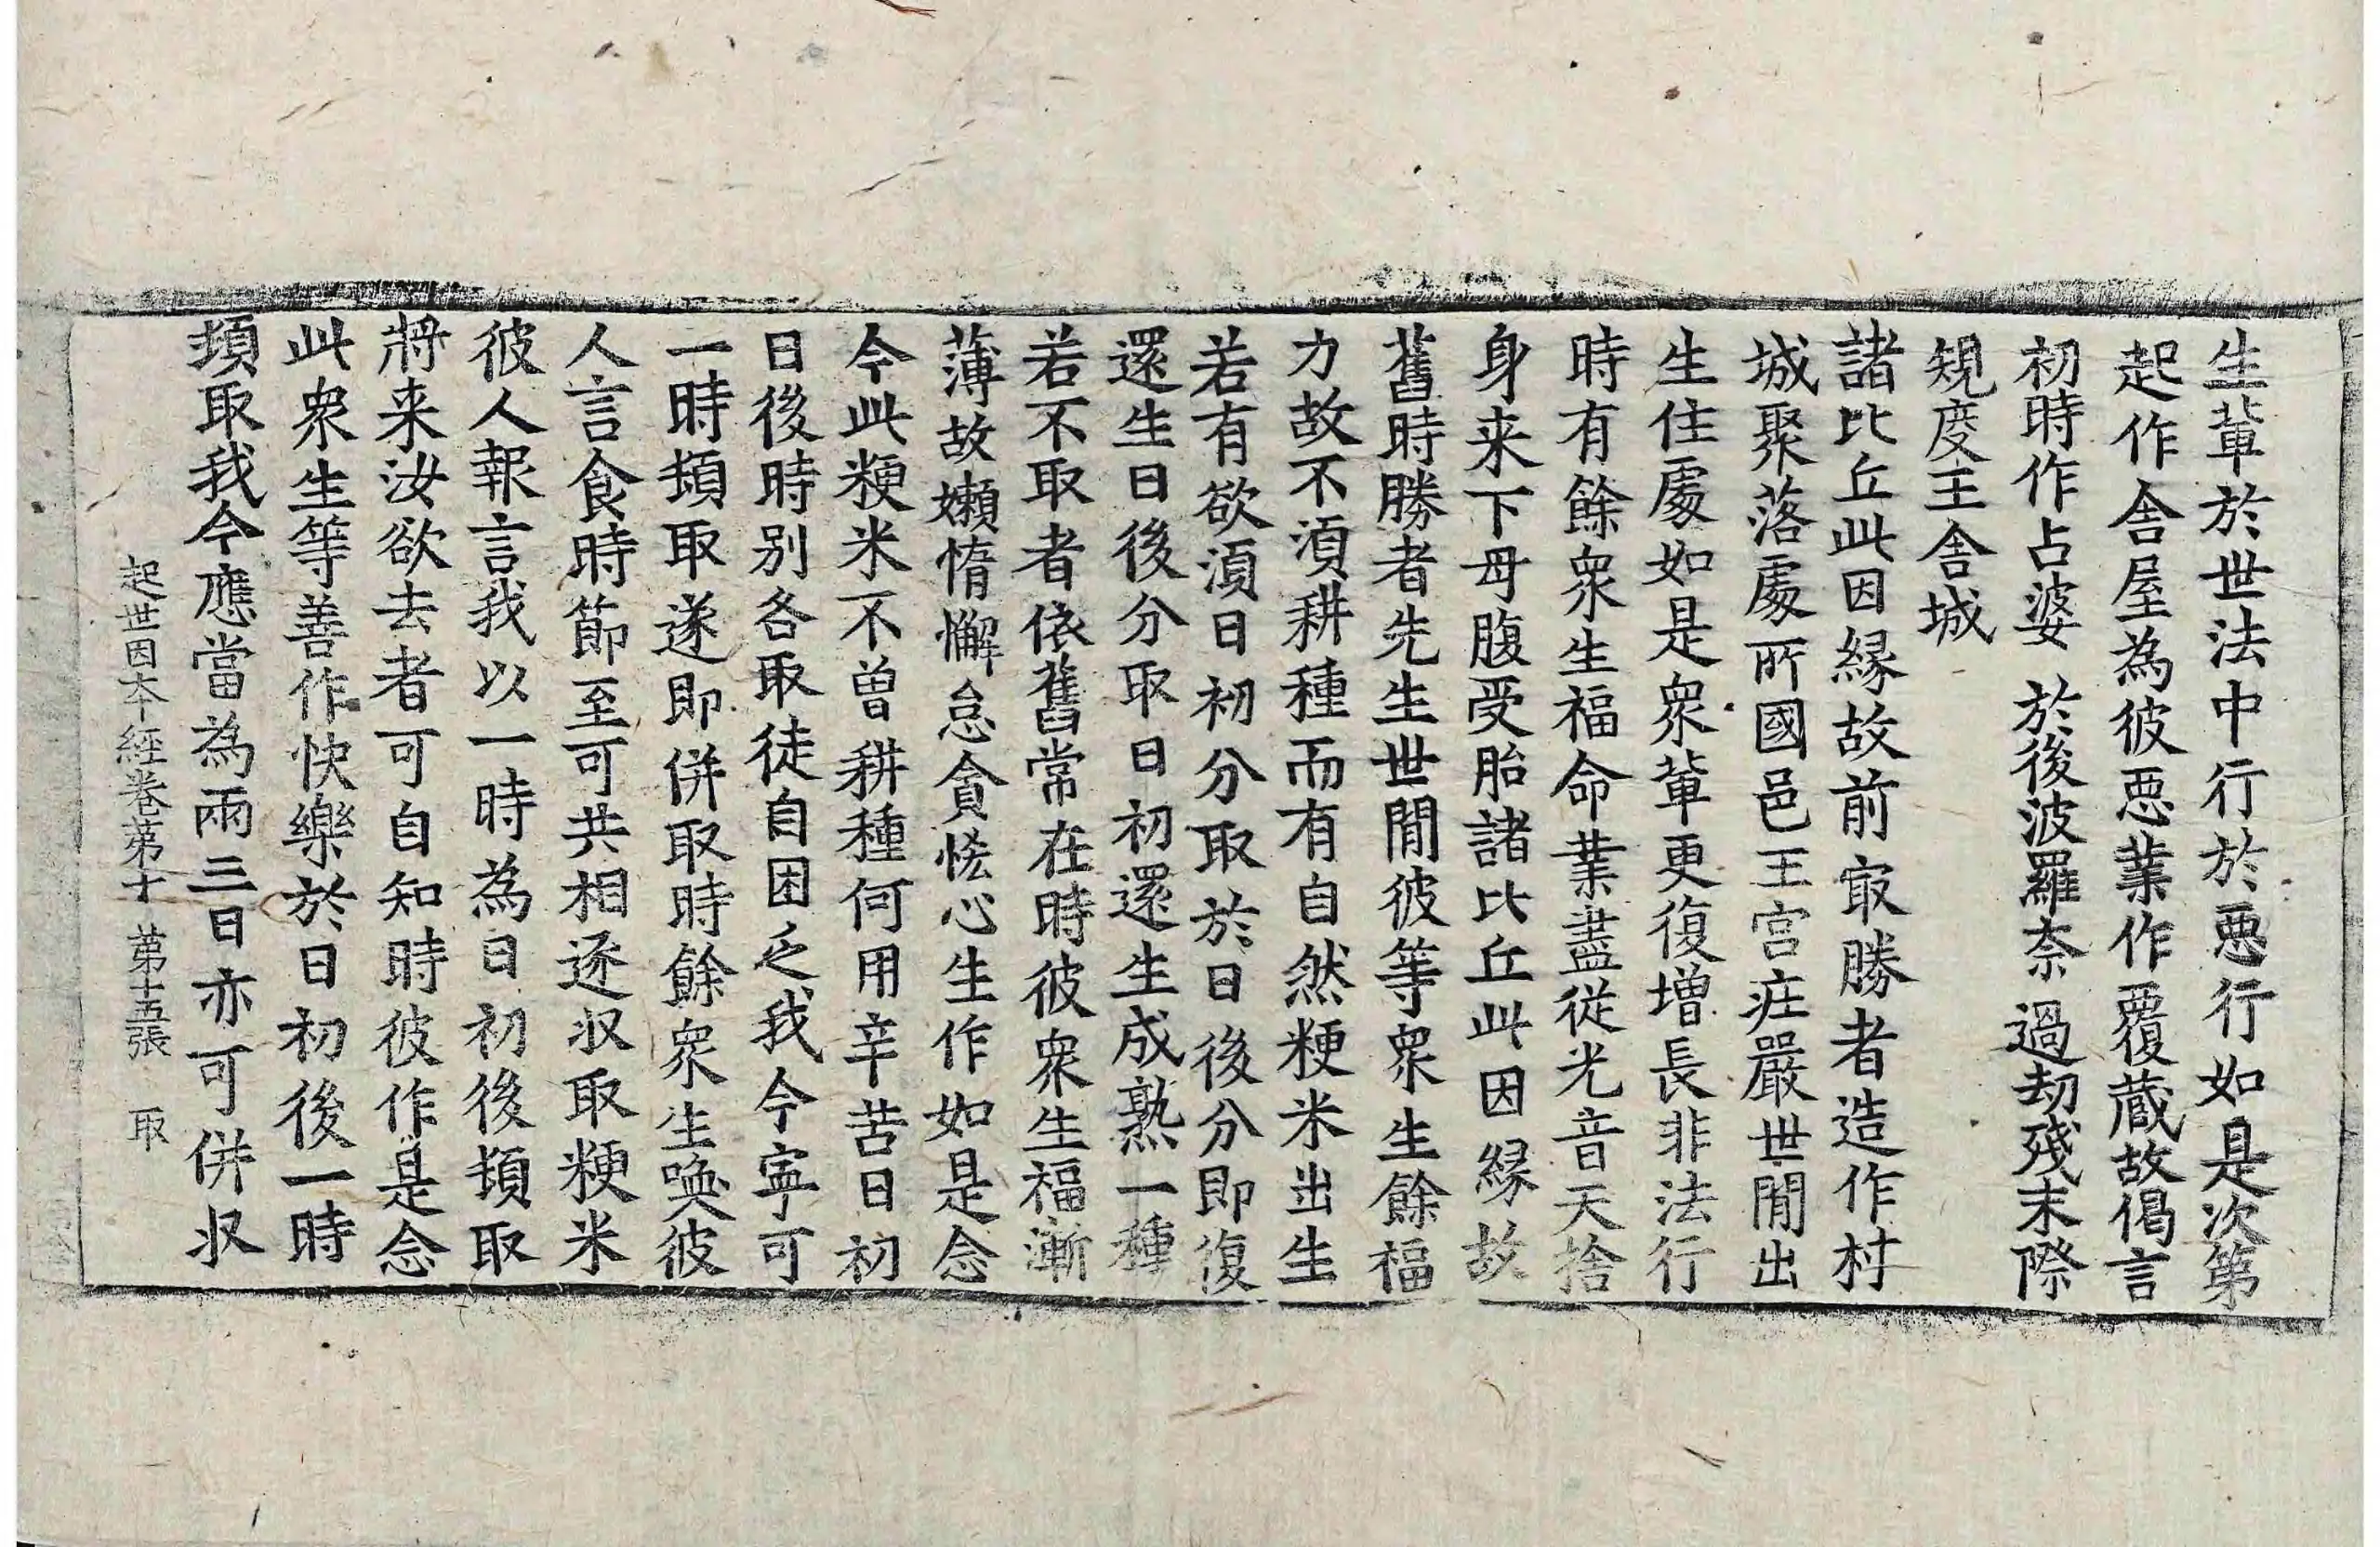 生軰於世法中行於惡行如是次第
起作舎屋為彼惡業作覆蔵故偈言
初時作占婆　於後波羅奈　過劫殘末際
䂓度王舎城
諸比丘此因縁故前㝡勝者造作村
城聚落處所國邑王宫莊嚴世間出
生住處如是衆軰更復增長非法行
時有餘衆生福命業盡從光音天捨
身来下母腹受胎諸比丘此因縁故
舊時勝者先生世間彼等衆生餘福
力故不湏耕種而有自然粳米出生
若有欲湏日初分取於日後分即復
還生日後分取日初還生成熟一種
若不取者依舊常在時彼衆生福漸
薄故嬾惰懈怠貪恡心生作如是念
今此粳米不曽耕種何用辛苦日初
日後時別各取徒自困乏我今寜可
一時頓取遂即併取時餘衆生喚彼
人言食時節至可共相逐収取粳米
彼人報言我以一時為日初後頓取
將来汝欲去者可自知時彼作是念
此衆生等善作快樂於日初後一時
頓取我今應當為兩三日亦可併収
起世因本經卷第十　第十五張　取